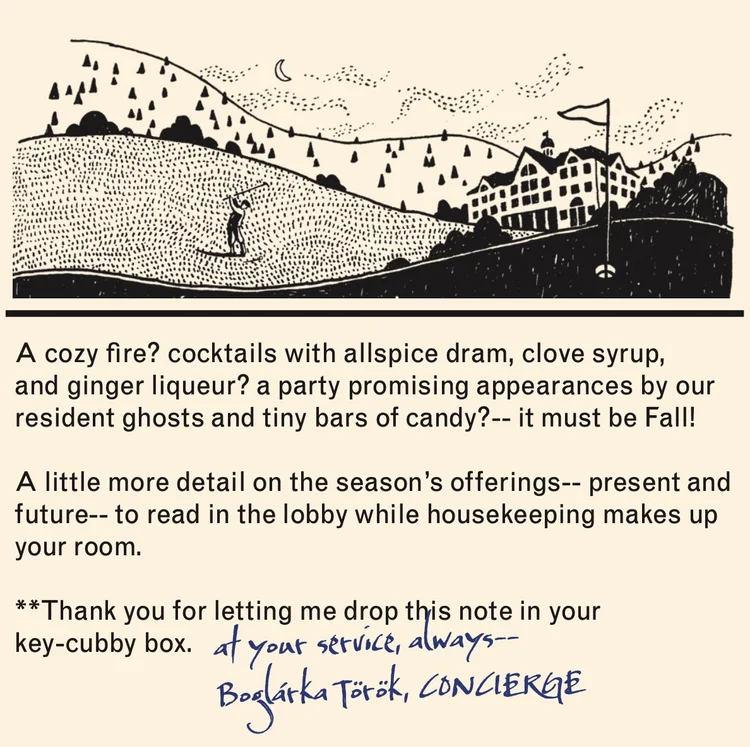 A cozy fire? cocktails with allspice dram, clove syrup,
and ginger liqueur? a party promising appearances by our
resident ghosts and tiny bars of candy?-- it must be Fall!
A little more detail on the season’s offerings-- present and
future-- to read in the lobby while housekeeping makes up
your room.
**Thank you for letting me drop this note in your
key-cubby box.
at your service, always--
Boglárka Török, CONCIERGE